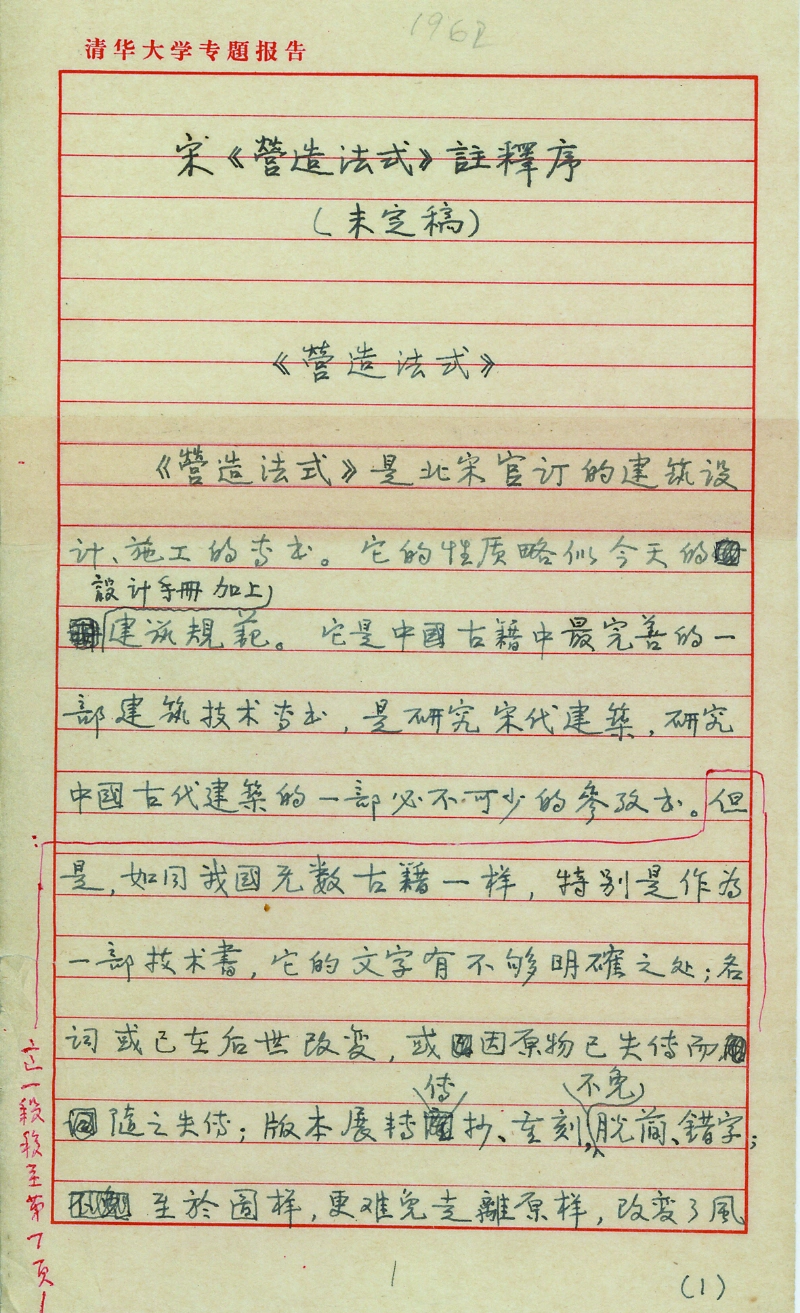 1962
清华大学专題报告
宋《營造法式》註釋序
(未定稿)
《營造法式》
《營造法式》是北宋官订的建筑设
计、施工的专书。它的性质略似今天的
設计手冊加上
建筑規範。它是中國古籍中最完善的一
部建筑技术专书,是研究宋代建築,研究
中國古代建築的一部必不可少的參攷书。但
是,如同我國无数古籍一样,特别是作為
一部技术書,它的文字有不够明確之处;名
词或已在后世改变,或因原物已失传而
传 不免
随之失传;版本展转抄、重刻,脱简、错字;
至於圖样,更难免走離原样,改变了風
这一段移至第7页
1
(1)